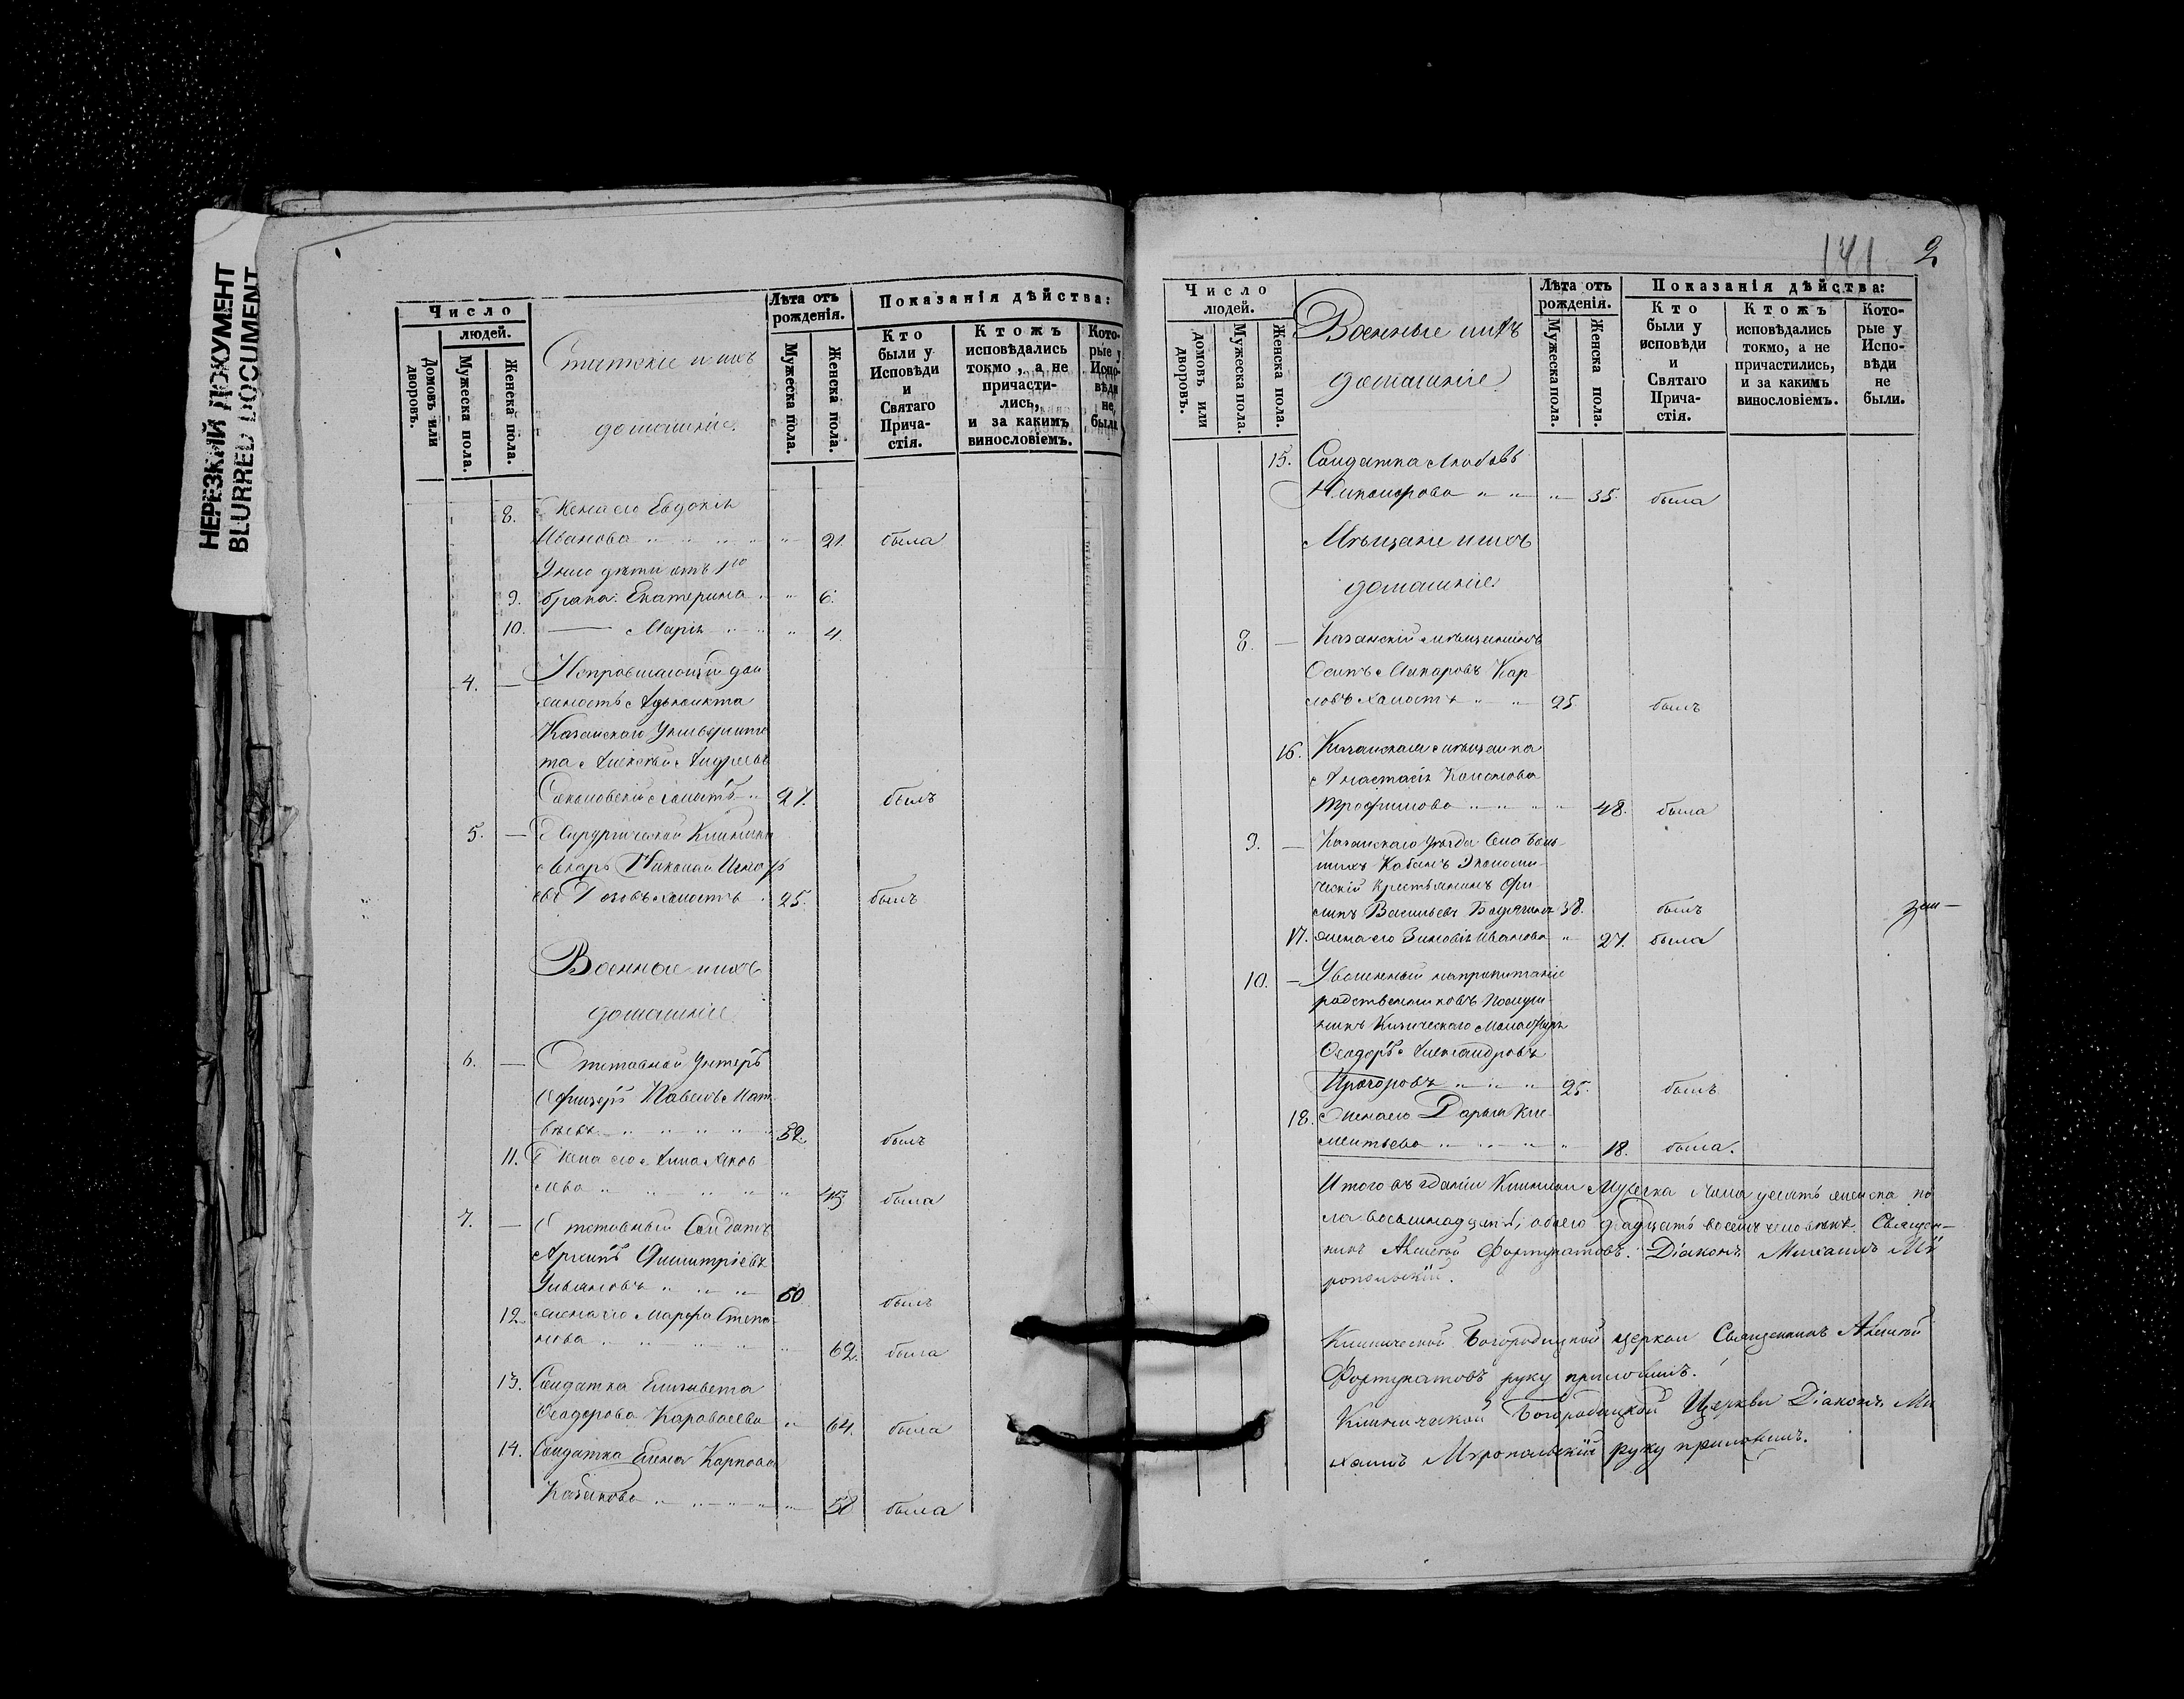 НЕРЕЗКИЙ ДОКУМЕНТ
BLURRED DOCUMENT
Число
людей.
Домовъ или дворовъ.
Мужеска пола.
Женска пола.
Статскіе и ихъ
домашніе.
Лѣта отъ
рожденія.
Мужеска пола.
Женска пола.
Показанія дѣйства:
Кто
были у
Исповѣди
и
Святаго
Прича-
стія.
Ктожъ
исповѣдались
токмо, а не
причасти-
лись,
и за какимъ
винословіемъ.
Кото-
рые у
Испо-
вѣди
не
были
8. Жена его Евдокія
Иванова 21. была
У нихъ дѣти отъ 1го
9. брака: Екатерина 6.
10. Марія 4.
4. — Исправляющій дол
жность Адъюнкта
Казанскаго Университе
та Алексѣй Андреевъ
холостъ 27. былъ
5. — Хирургической Клиники
Лекарь Николай
холостъ 25. былъ
Военные и ихъ
домашніе.
6. — Отставной Унтеръ
Офицеръ Павелъ Мат
вѣевъ 52. былъ
11. Жена его Анна Яков
лева 45 была
7. — Отставный Солдатъ
Архипъ Димитріевъ
Ульяновъ 60 былъ
12. жена его Марфа Степа
нова 62. была
13. Солдатка Елизавета
Ѳеодорова Караваева 64. была
14. Солдатка Елена Карпова
Казакова 58 была
141 2
Число
людей.
Домовъ или дворовъ.
Мужеска пола.
Женска пола.
Военные и ихъ
домашніе
Лѣта отъ
рожденія.
Мужеска пола.
Женска пола.
Показанія дѣйства:
Кто
были у
исповѣди
и
Святаго
Прича-
стія.
Ктожъ
исповѣдались
токмо, а не
причастились,
и за какимъ
винословіемъ.
Кото-
рые у
Испо-
вѣди
не
были.
15. Солдатка Любовь
Никифорова 35. была
Мѣщане и ихъ
домашніе.
8. — Казанскій мѣщанинъ
Осипъ Макаровъ Кар
ловъ холостъ 25 былъ
16. Казанская мѣщанка
Анастасія
Трофимова 48. была
9. — Казанскаго уѣзда Села Боль
шихъ Кабанъ Экономи
ческій Крестьянинъ Фи
липъ Васильевъ 38. былъ
17. жена его Зиновія Иванова 27. была
10. — Уволенный на пропитаніе
родственниковъ Послуш
никъ Кизическаго Монастыря
Ѳеодоръ Александровъ
Прохоровъ 25. былъ
18. Жена его Дарья Кле
ментьева 18. была.
Итого въ зданіи Клиники Мужеска пола десять женска по
ла восьмнадцать, обоего двадцать восемь человѣкъ. Священ-
никъ Алексѣй Фортунатовъ. Діаконъ Михаилъ Мѵ
ропольскій.
Клинической Богородицкой церкви Священникъ Алексѣй
Фортунатовъ руку приложилъ.
Клинической Богородицкой Церкви Діаконъ Ми
хаилъ Мѵропольскій руку приложилъ.